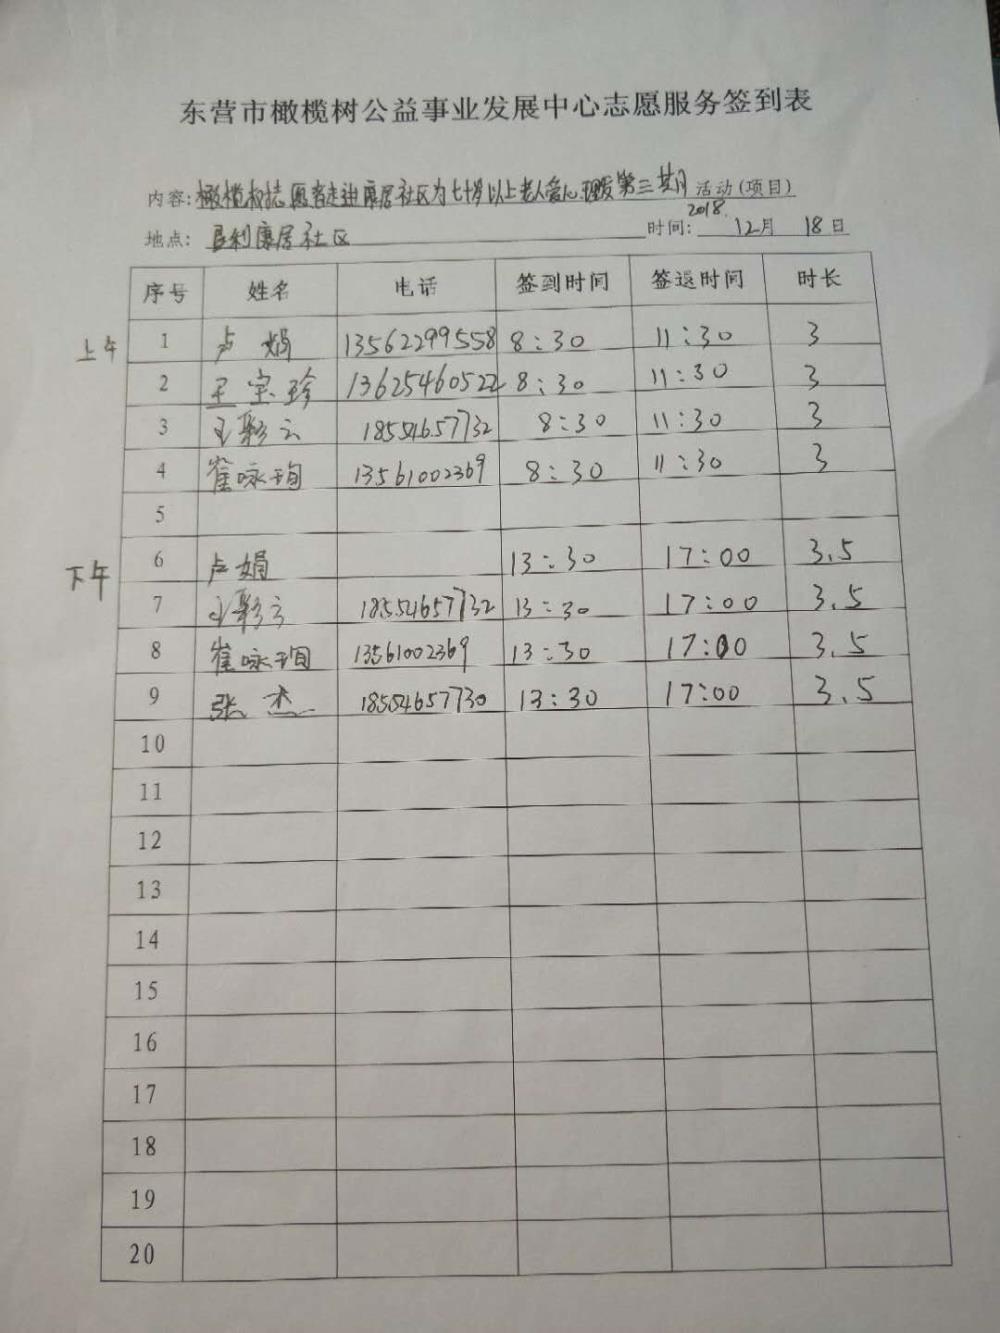 东营市橄榄树公益事业发展中心志愿服务签到表
内容: 橄榄树志愿者走进康居社区为七十岁以上老人爱心理发第三期 活动(项目)
地点: 垦利康居社区 时间: 2018. 12月 18日
序号 姓名 电话 签到时间 签退时间 时长
上午 1 卢娟 13562299558 8:30 11:30 3
2 王宝珍 13625460522 8:30 11:30 3
3 王彩云 18554657732 8:30 11:30 3
4 崔咏珣 13561002369 8:30 11:30 3
5
下午 6 卢娟 13:30 17:00 3.5
7 王彩云 18554657732 13:30 17:00 3.5
8 崔咏珣 13561002369 13:30 17:00 3.5
9 张杰 18554657730 13:30 17:00 3.5
10
11
12
13
14
15
16
17
18
19
20